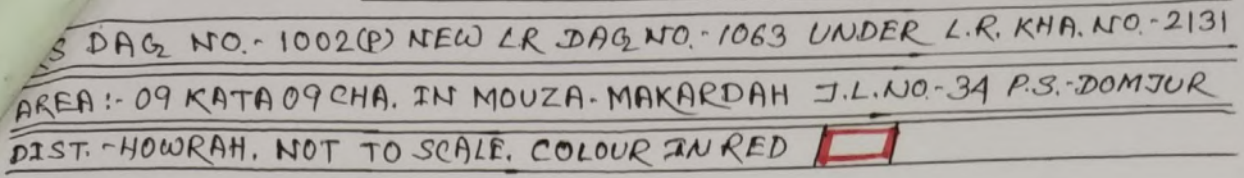 S DAG NO.- 1002(P) NEW LR DAG NO.- 1063 UNDER L.R. KHA. NO.- 2131
AREA :- 09 KATA 09 CHA. IN MOUZA- MAKARDAH J.L.NO.-34 P.S.-DOMJUR
DIST. -HOWRAH. NOT TO SCALE. COLOUR IN RED